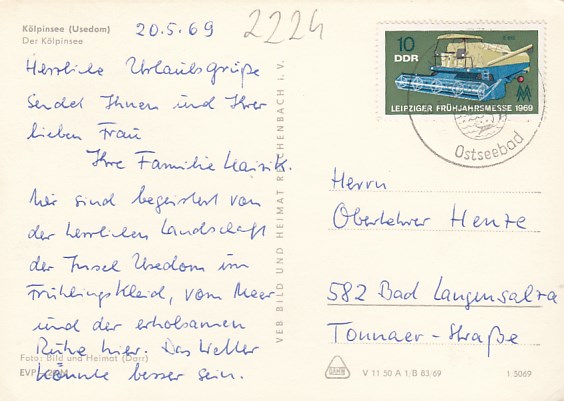 Kölpinsee (Usedom)
Der Kölpinsee
20.5.69
2224
Herrliche Urlaubsgrüße
sendet Ihnen und Ihrer
lieben Frau
Ihre Familie
Wir sind begeistert von
der herrlichen Landschaft
der Insel Usedom im
Frühlingskleid, vom Meer
und der erholsamen
Ruhe hier. Das Wetter
könnte besser sein.
Foto: Bild und Heimat (Darr)
EVP
VEB BILD UND HEIMAT REICHENBACH i. V.
10
DDR
LEIPZIGER FRÜHJAHRSMESSE 1969
Ostseebad
Herrn
Oberlehrer Henze
582 Bad Langensalza
Tonnaer-Straße
V 11 50 A 1/B 83/69
1 5069